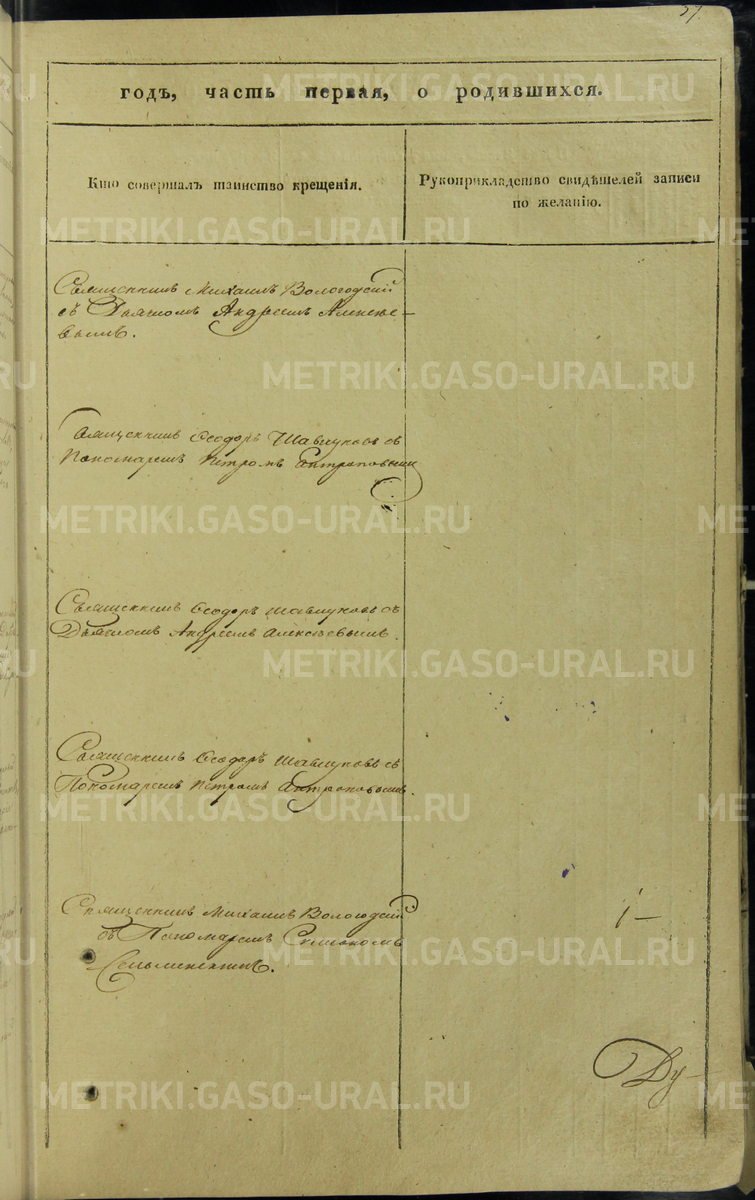 37.
годъ, часть первая, о родившихся.
Кто совершалъ таинство крещенія.
Рукоприкладство свидѣтелей записи
по желанію.
Священникъ Михаилъ Вологодскій
съ Дьячкомъ Андреемъ Алексѣе-
вымъ.
Священникъ Ѳеодоръ Шавкуновъ съ
Пономаремъ Петромъ
Священникъ Ѳеодоръ Шавкуновъ съ
Дьячкомъ Андреемъ Алексѣевымъ.
Священникъ Ѳеодоръ Шавкуновъ съ
Пономаремъ Петромъ
Священникъ Михаилъ Вологодскій
съ Пономаремъ
1 —
Ду-
METRIKI.GASO-URAL.RU